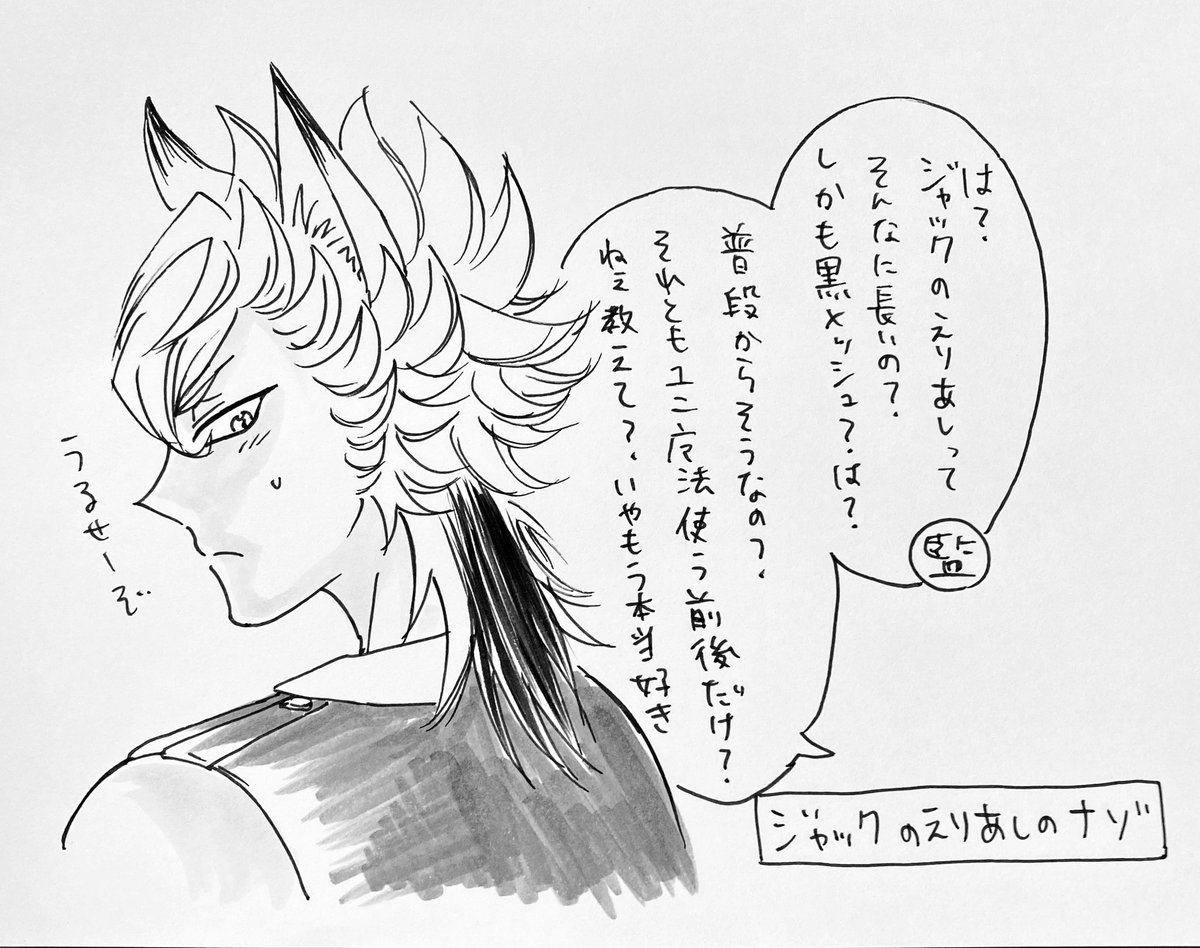 は？
ジャックのえりあしって
そんなに長いの？
しかも黒メッシュ？は？
監
普段からそうなの？、
それともユニ魔法使う前後だけ？
ねえ教えて？、いやもう本当好き
うるせーぞ
ジャックのえりあしのナゾ